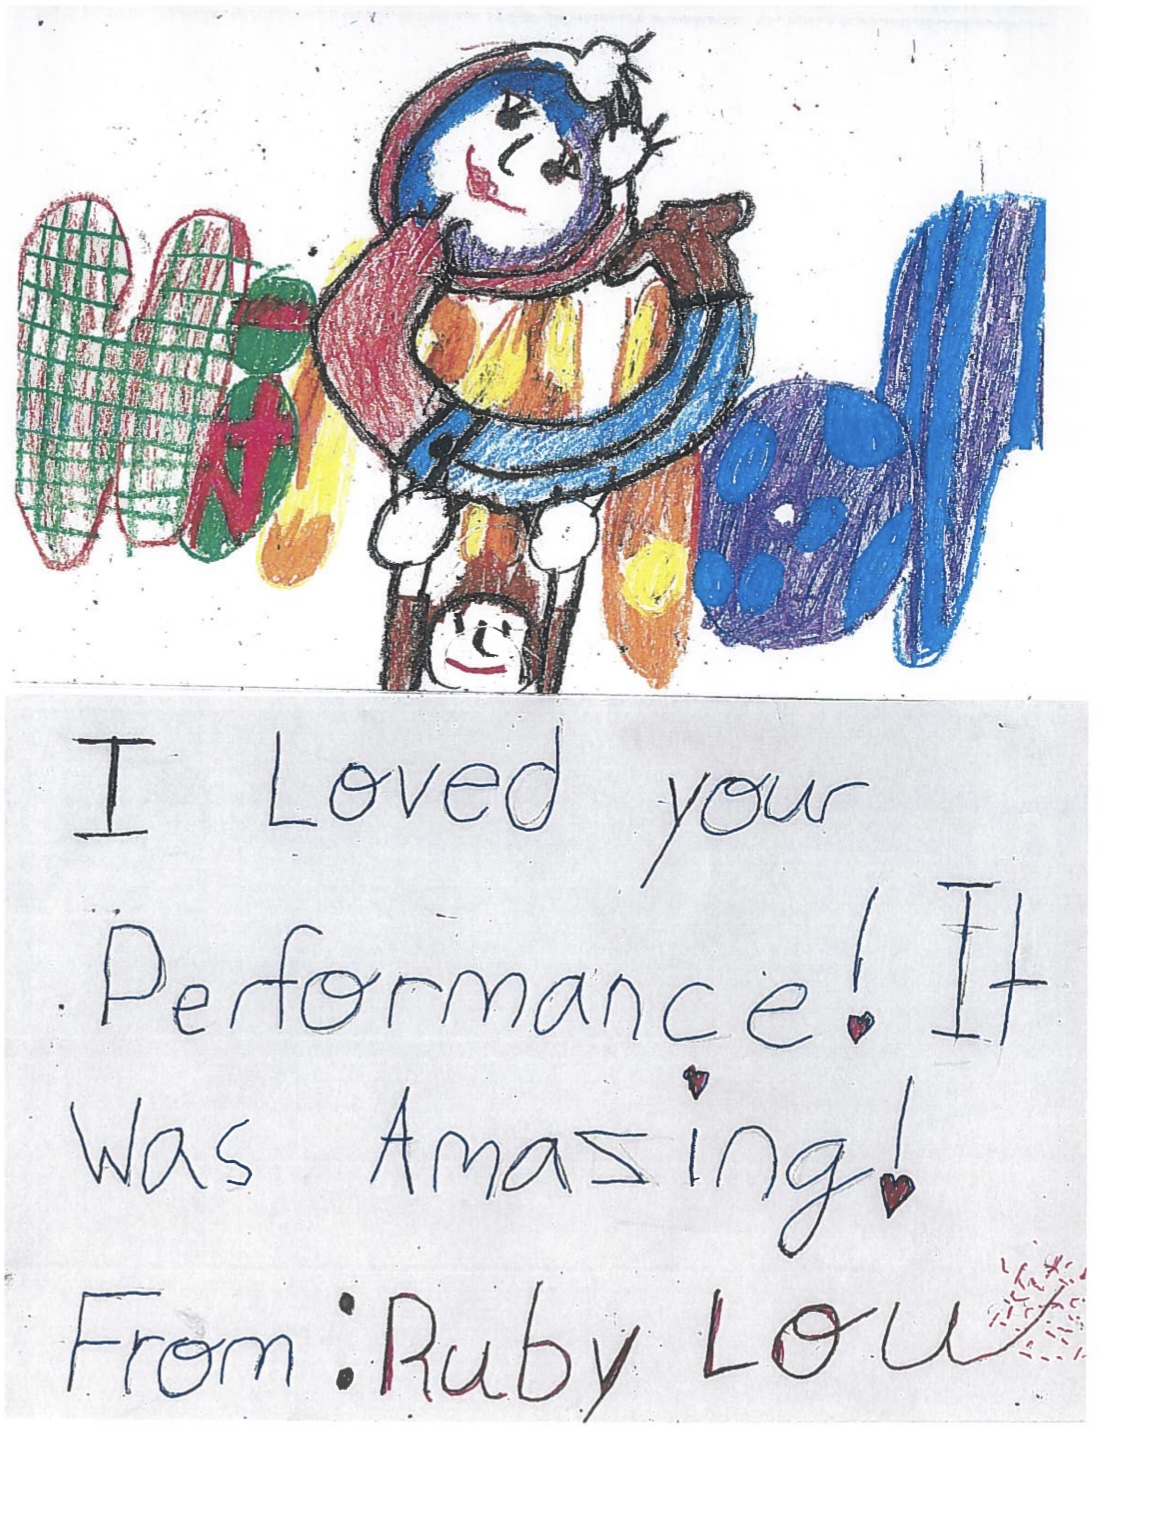 I Loved your
Performance! It
Was Amazing!
From: Ruby Lou